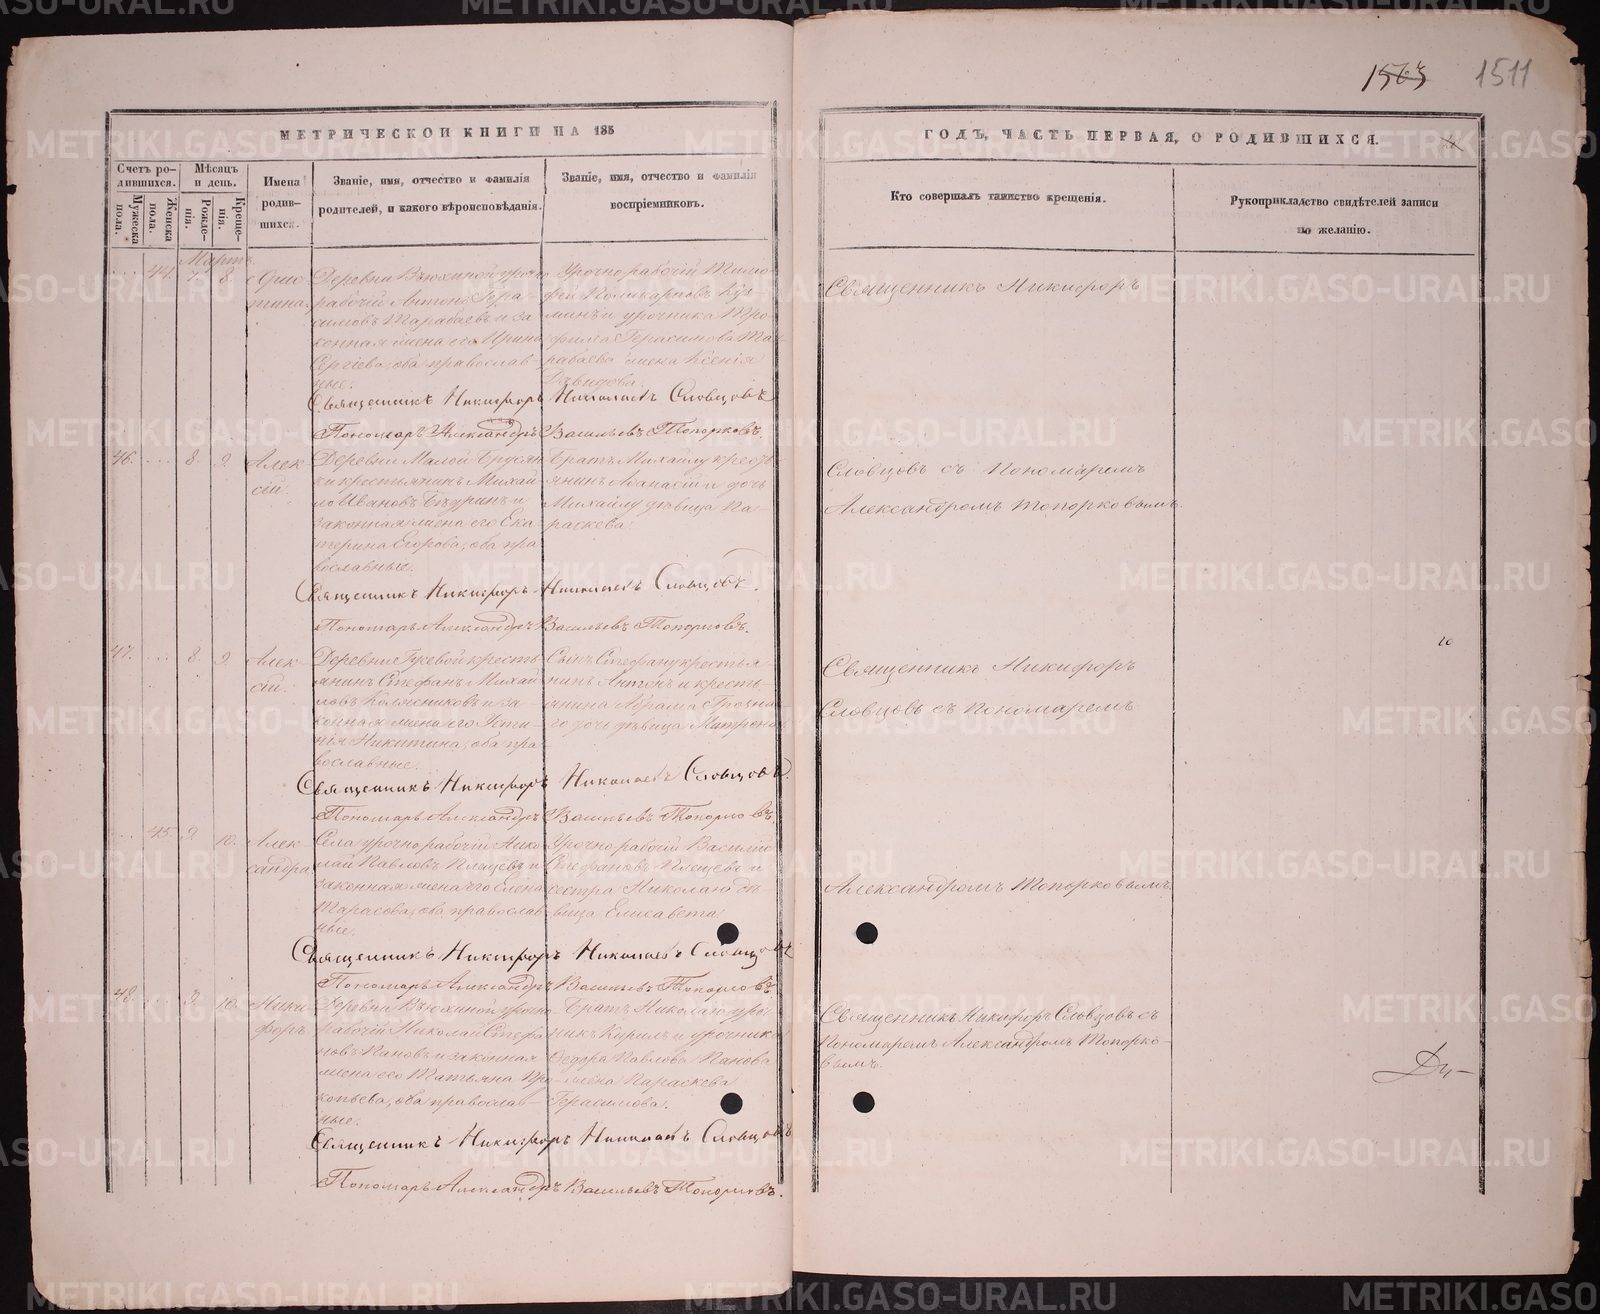 1503 1511
МЕТРИЧЕСКОЙ КНИГИ НА 185
ГОДЪ, ЧАСТЬ ПЕРВАЯ, О РОДИВШИХСЯ.
Счетъ ро-
дившихся.
Мѣсяцъ
и день.
Имена
родив-
шихся.
Званіе, имя, отчество и фамилія
родителей, и какого вѣроисповѣданія.
Званіе, имя, отчество и фамилія
воспріемниковъ.
Кто совершалъ таинство крещенія.
Рукоприкладство свидѣтелей записи
по желанію.
Мужеска
пола.
Женска
пола.
Рожде-
нія.
Креще-
нія.
Мартъ
44. 7. 8.
Деревни Вьюхиной урочно
рабочій Антонъ Гера-
симовъ Тарабаевъ и за-
конная жена его Ирина
Сергіева, оба православ-
ные.
Урочно рабочій Тимо-
фей Поликарповъ Куз-
минъ и урочника Тро-
фима Герасимова Та-
рабаева жена Ксенія
Давидова.
Священникъ Никифоръ
Священникъ Никифоръ Николаевъ Словцовъ
Пономарь Александръ Васильевъ Топорковъ.
46. 8. 9. Алек-
сій.
Деревни Малой Брусян-
ки крестьянинъ Михай-
ло Ивановъ и
законная жена его Ека-
терина Егорова, оба пра-
вославные.
Братъ Михайлу кресть-
янинъ Афанасій и дочь
Михайлу дѣвица Па-
раскева.
Словцовъ съ Пономаремъ
Александромъ Топорковымъ.
Священникъ Никифоръ Николаевъ Словцовъ.
Пономарь Александръ Васильевъ Топорковъ.
47. 8. 9. Алек-
сій.
Деревни Гусевой кресть-
янинъ Стефанъ Михай-
ловъ Колясниковъ и за-
конная жена его Усти-
нія Никитина, оба пра-
вославные.
Сынъ Стефану крестья-
нинъ Антонъ и кресть-
янина Абрама
дочь дѣвица Матрона.
Священникъ Никифоръ
Словцовъ съ Пономаремъ
Священникъ Никифоръ Николаевъ Словцовъ.
Пономарь Александръ Васильевъ Топорковъ.
45. 9. 10. Алек-
сандра
Села урочно рабочій Нико-
лай Павловъ Плещевъ и
законная жена его Елена
Тарасова, оба православ-
ные.
Урочно рабочій Василій
Стефановъ Плещевъ и
сестра Николаю дѣ-
вица Елисавета.
Александромъ Топорковымъ.
Священникъ Никифоръ Николаевъ Словцовъ
Пономарь Александръ Васильевъ Топорковъ.
48. 9. 10. Ники-
форъ
Деревни Вьюхиной урочно
рабочій Николай Стефа-
новъ Пановъ и законная
жена его Татьяна Про-
копьева, оба православ-
ные.
Братъ Николаю уроч-
никъ Кирилъ и урочника
Федора Павлова Панова
жена Параскева
Герасимова.
Священникъ Никифоръ Словцовъ съ
Пономаремъ Александромъ Топорко-
вымъ.
Священникъ Никифоръ Николаевъ Словцовъ
Пономарь Александръ Васильевъ Топорковъ.
METRIKI.GASO-URAL.RU